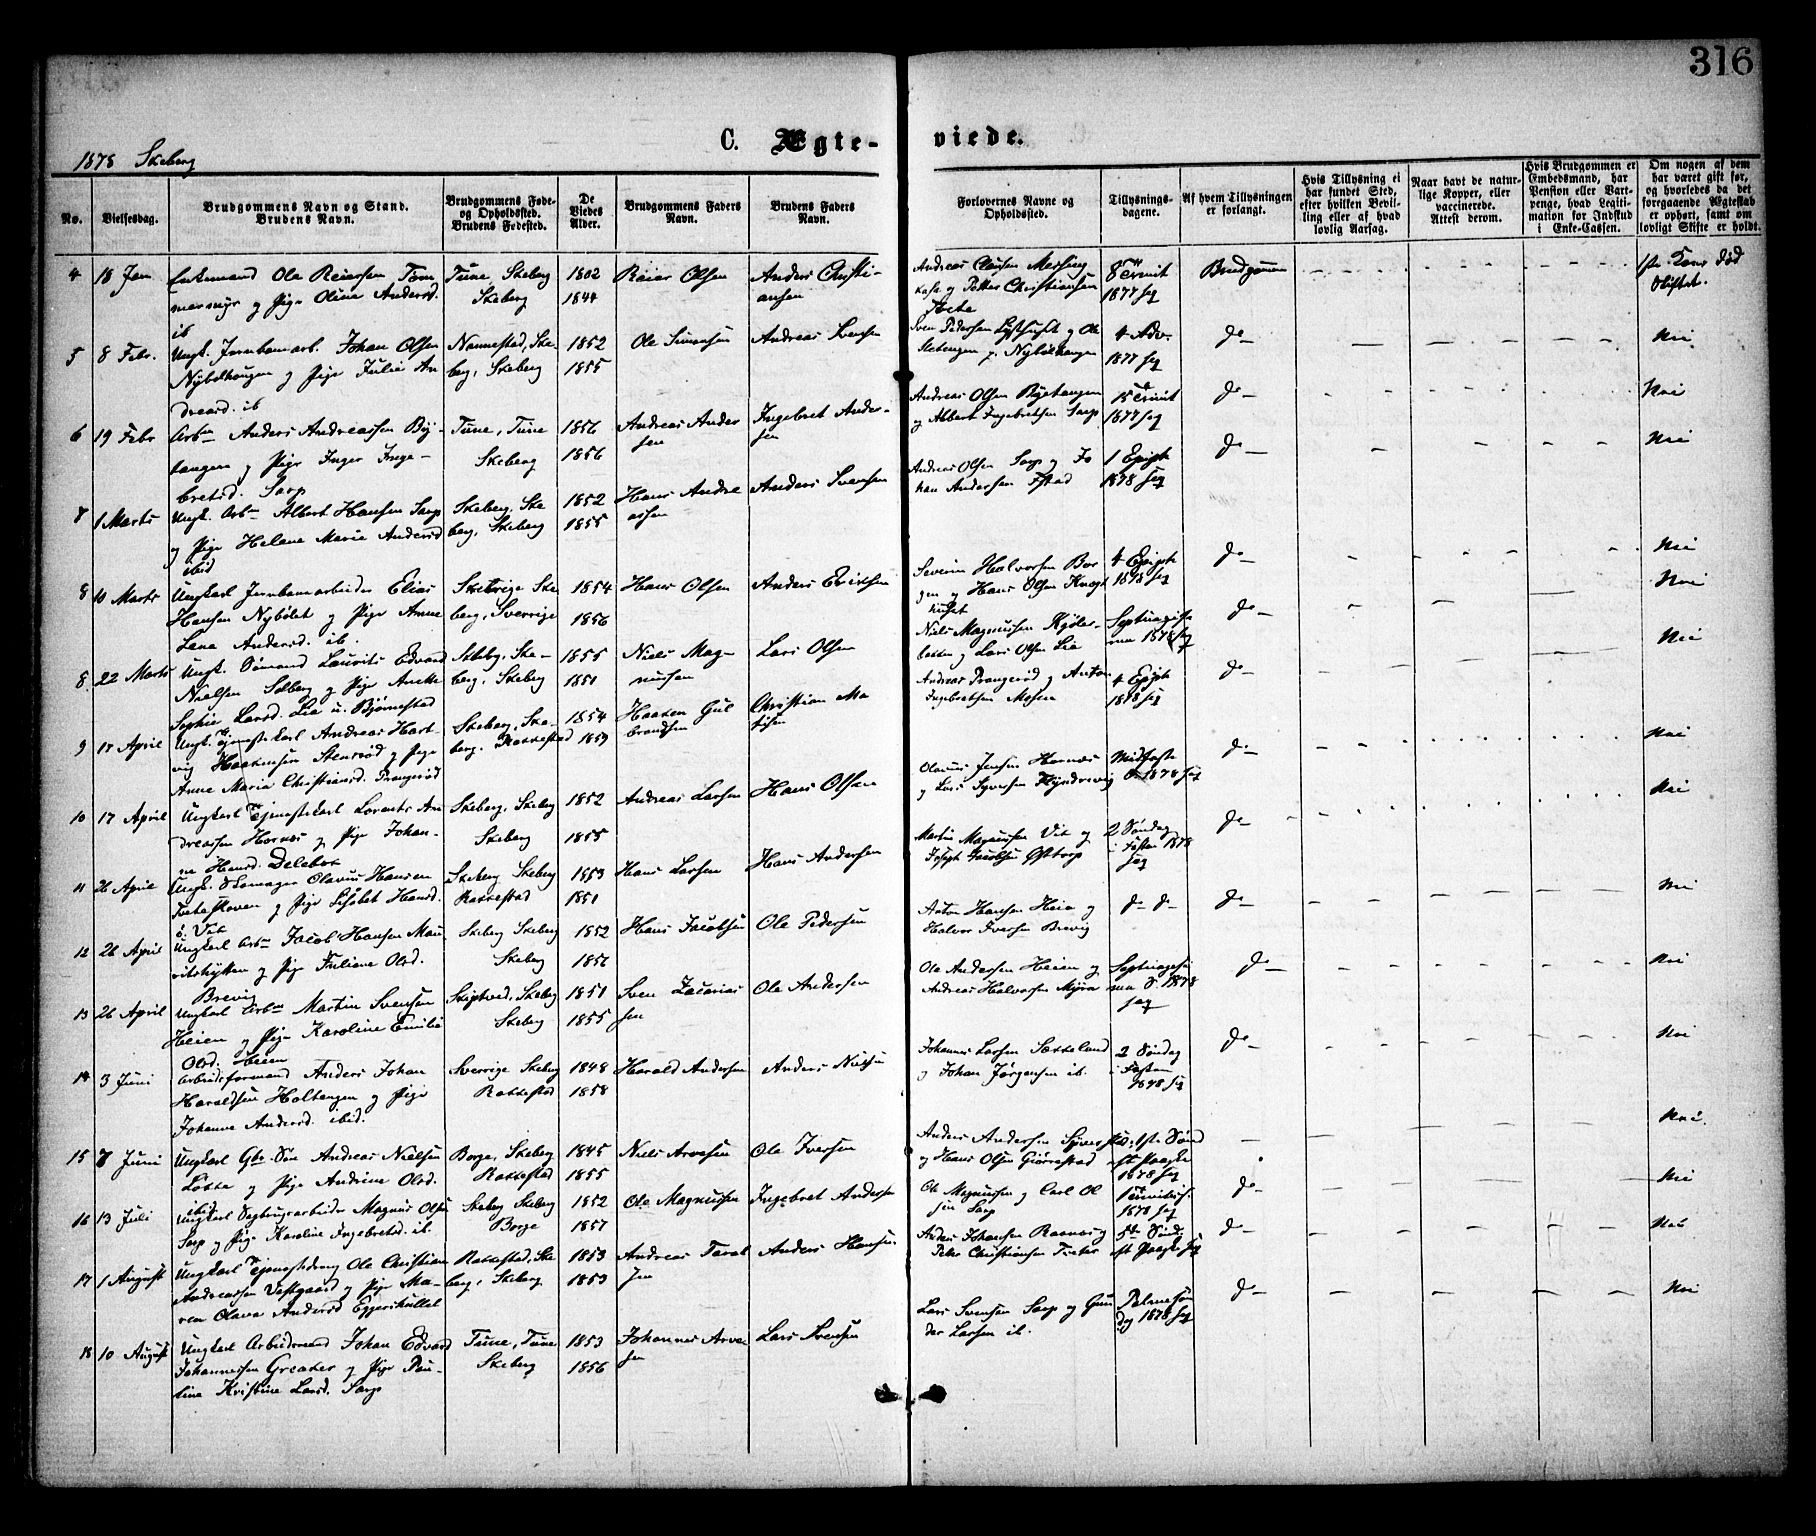 316
C. Ægte-
viede.
1878 Skeberg
No.
Vielsesdag.
Brudgommens Navn og Stand.
Brudens Navn.
Brudgommens Føde-
og Opholdssted.
Brudens Fødested.
De
Viedes
Alder.
Brudgommens Faders
Navn.
Brudens Faders
Navn.
Forlovernes Navne og
Opholdssted.
Tillysnings-
dagene.
Af hvem Tillysningen
er forlangt.
Hvis Tillysning ei
har fundet Sted,
efter hvilken Bevil-
ling eller af hvad
lovlig Aarsag.
Naar havt de natur-
lige Kopper, eller
vaccinerede.
Attest derom.
Hvis Brudgommen er
Embedsmand, har
Pension eller Vart-
penge, hvad Legiti-
mation for Indskud
i Enke-Cassen.
Om nogen af dem
har været gift før,
og hvorledes da det
forgaaende Ægteskab
er ophørt, samt om
lovligt Skifte er holdt.
4 18 Jan
Enkemand Ole Reiersen Tøm
mermyr og Pige Oline Andersd.
ib
Tune, Skeberg
Skeberg
1802
1844
Reier Olsen
Anders Christi-
ansen
Andreas Clausen
og Petter Christiansen
1877
Brudgommen
1ste Kone død
5 8 Febr.
Ungk. Jernbanarb. Johan Olsen
Nybølhougen og Pige Julie An
dreasd. ib
Nannestad, Ske-
berg, Skeberg
1852
1855
Ole Simensen
Andreas Svensen
Sven Pedersen Lysthuset og Ole
4 Adv.
1877 seq
do —
Nei
6 19 Febr
Arbm Anders Andreassen By-
tangen og Pige Inger Inge-
bretsd. Sarp
Tune, Tune
Skeberg
1856
1856
Andreas Ander
sen
Ingebret Ander-
sen
Andreas Olsen Byetangen
og Albert Ingebretsen Sarp
1877 seq
do —
Nei
7 1 Marts
Ungk. Arbm Albert Hansen Sarp
og Pige Helene Marie Andersd
ibid
Skeberg, Ske
berg, Skeberg
1852
1855
Hans Andre
assen
Anders Svensen
Andreas Olsen Sarp og Jo
han Andersen
1 Epiph
1878 seq
do —
Nei
8 10 Marts
Ungkarl Jernbanarbeider Elias
Hansen Nybølet og Pige Anne
Lena Andersd. ib.
berg, Sverrige
1854
1856
Hans Olsen
Anders Ericksen
Severin Halvorsen Bor
gen og Hans Olsen
4 Epiph
1878 seq
do —
Nei
8. 22 Marts
Ungk. Sømand Lauritz Edvard
Nielsen Solberg og Pige
Sophie Larsd. Lie u. Bjørnestad
Skebg, Ske-
berg, Skeberg
1855
1851
Niels Mag-
nusen
Lars Olsen
Niels Magnussen
og Lars Olsen Lie
Septuagesi
ma 1878 seq
do —
Nei
9 17 April
Ungk. Tjenestekarl Andreas Hart-
vig Haakensen Stenrød og Pige
Anne Maria Christiansd. Prangerød
Skeberg, Ske-
berg. Rakkestad
1854
1859
Haaken Gul
brandsen
Christian Ma
thisen
Andreas Prangerød og Anton
Ingebretsen Mosen
4 Epiph
1878 seq
do —
Nei
10 17 April
Ungkarl Tjenestekarl Lorents An
dreassen Hornes og Pige Johan-
ne Hansd. Delebek
Skeberg, Skeberg
Skeberg
1852
1855
Andreas Larsen
Hans Olsen
Olaus Jensen Hornæs
og Lars Syversen
Midfaste
S. 1878 seq
do —
Nei
11 26 April
Ungk. Skomager Olavus Hansen
og Pige Lisabet Hansd.
Skeberg Skeberg
Rakkestad
1853
1851
Hans Larsen
Hans Andersen
Martin Magnussen Vik og
Joseph Jacobsen Østtorp
2 Søndag
i Fasten 1878
seq
do —
Nei
12 26 April
Ungkarl Arbm Jacob Hansen Mau
ritshytten og Pige Juliane Olsd.
Brevig
Skeberg Skeberg
Skeberg
1852
1856
Hans Jacobsen
Ole Pedersen
Anton Hansen Heia og
Halvor Iversen Brevig
do— do—
do —
Nei
13 26 April
Ungkarl Arbm Martin Svensen
Heien og Pige Karoline Emilie
Olsd. Heien
Skiptved, Skeberg
Skeberg
1851
1855
Sven Zacarias
sen
Ole Andersen
Ole Andersen Heien og
Andreas Halvorsen Myra
Septuagesi
ma S. 1878
seq
do —
Nei
14 3 Juni
Arbeidsformand Anders Johan
Haraldsen Holtengen og Pige
Johanne Andersd. ibid.
Sverrige Skeberg
Rakkestad
1848
1858
Harald Andersen
Anders Nilsen
Johannes Larsen Sætteland
og Johan Jørgensen ib.
2 Søndag
i Fasten
1878 seq
do —
Nei
15 7 Juni
Ungkarl Gbr. Søn Andreas Nielsen
Løkke og Pige Andrine Olsd.
ibid
Borge, Skeberg
Rakkestad
1845
1855
Niels Arvesen
Ole Iversen
Anders Andersen
og Hans Olsen
1ste Sønd
eft Paaske
1878 seq
Nei
16 13 Juli
Ungkarl Sagbrugsarbeider Magnus Olsen
Sarp og Pige Karoline Ingebretsd. ib.
Skeberg Skeberg
Borge
1852
1857
Ole Magnussen
Ingebret Andersen
Ole Magnussen og Carl Ol
sen Sarp
1878 seq
do —
Nei
17 1 August
Ungkarl Tjenestedreng Ole Christian
Andreassen Vestgaard og Pige Ma-
ren Olava Andersd Eggershullet
Rakkestad, Ske
berg, Skeberg
1853
1853
Andreas Taral
sen
Anders Hansen
Anders Johansen
Peter Christiansen
5te Sønd
eft Paaske seq
do —
Nei
18 10 August
Ungkarl Arbeidsmand Johan Edvard
Johannessen Greaker og Pige Pau-
line Kristine Larsd. Sarp
Tune, Tune
Skeberg
1853
1856
Johannes Arve
sen
Lars Svensen
Lars Svensen Sarp og Gun
der Larsen ib.
Palmesøn
dag 1878 seq
do —
Nei